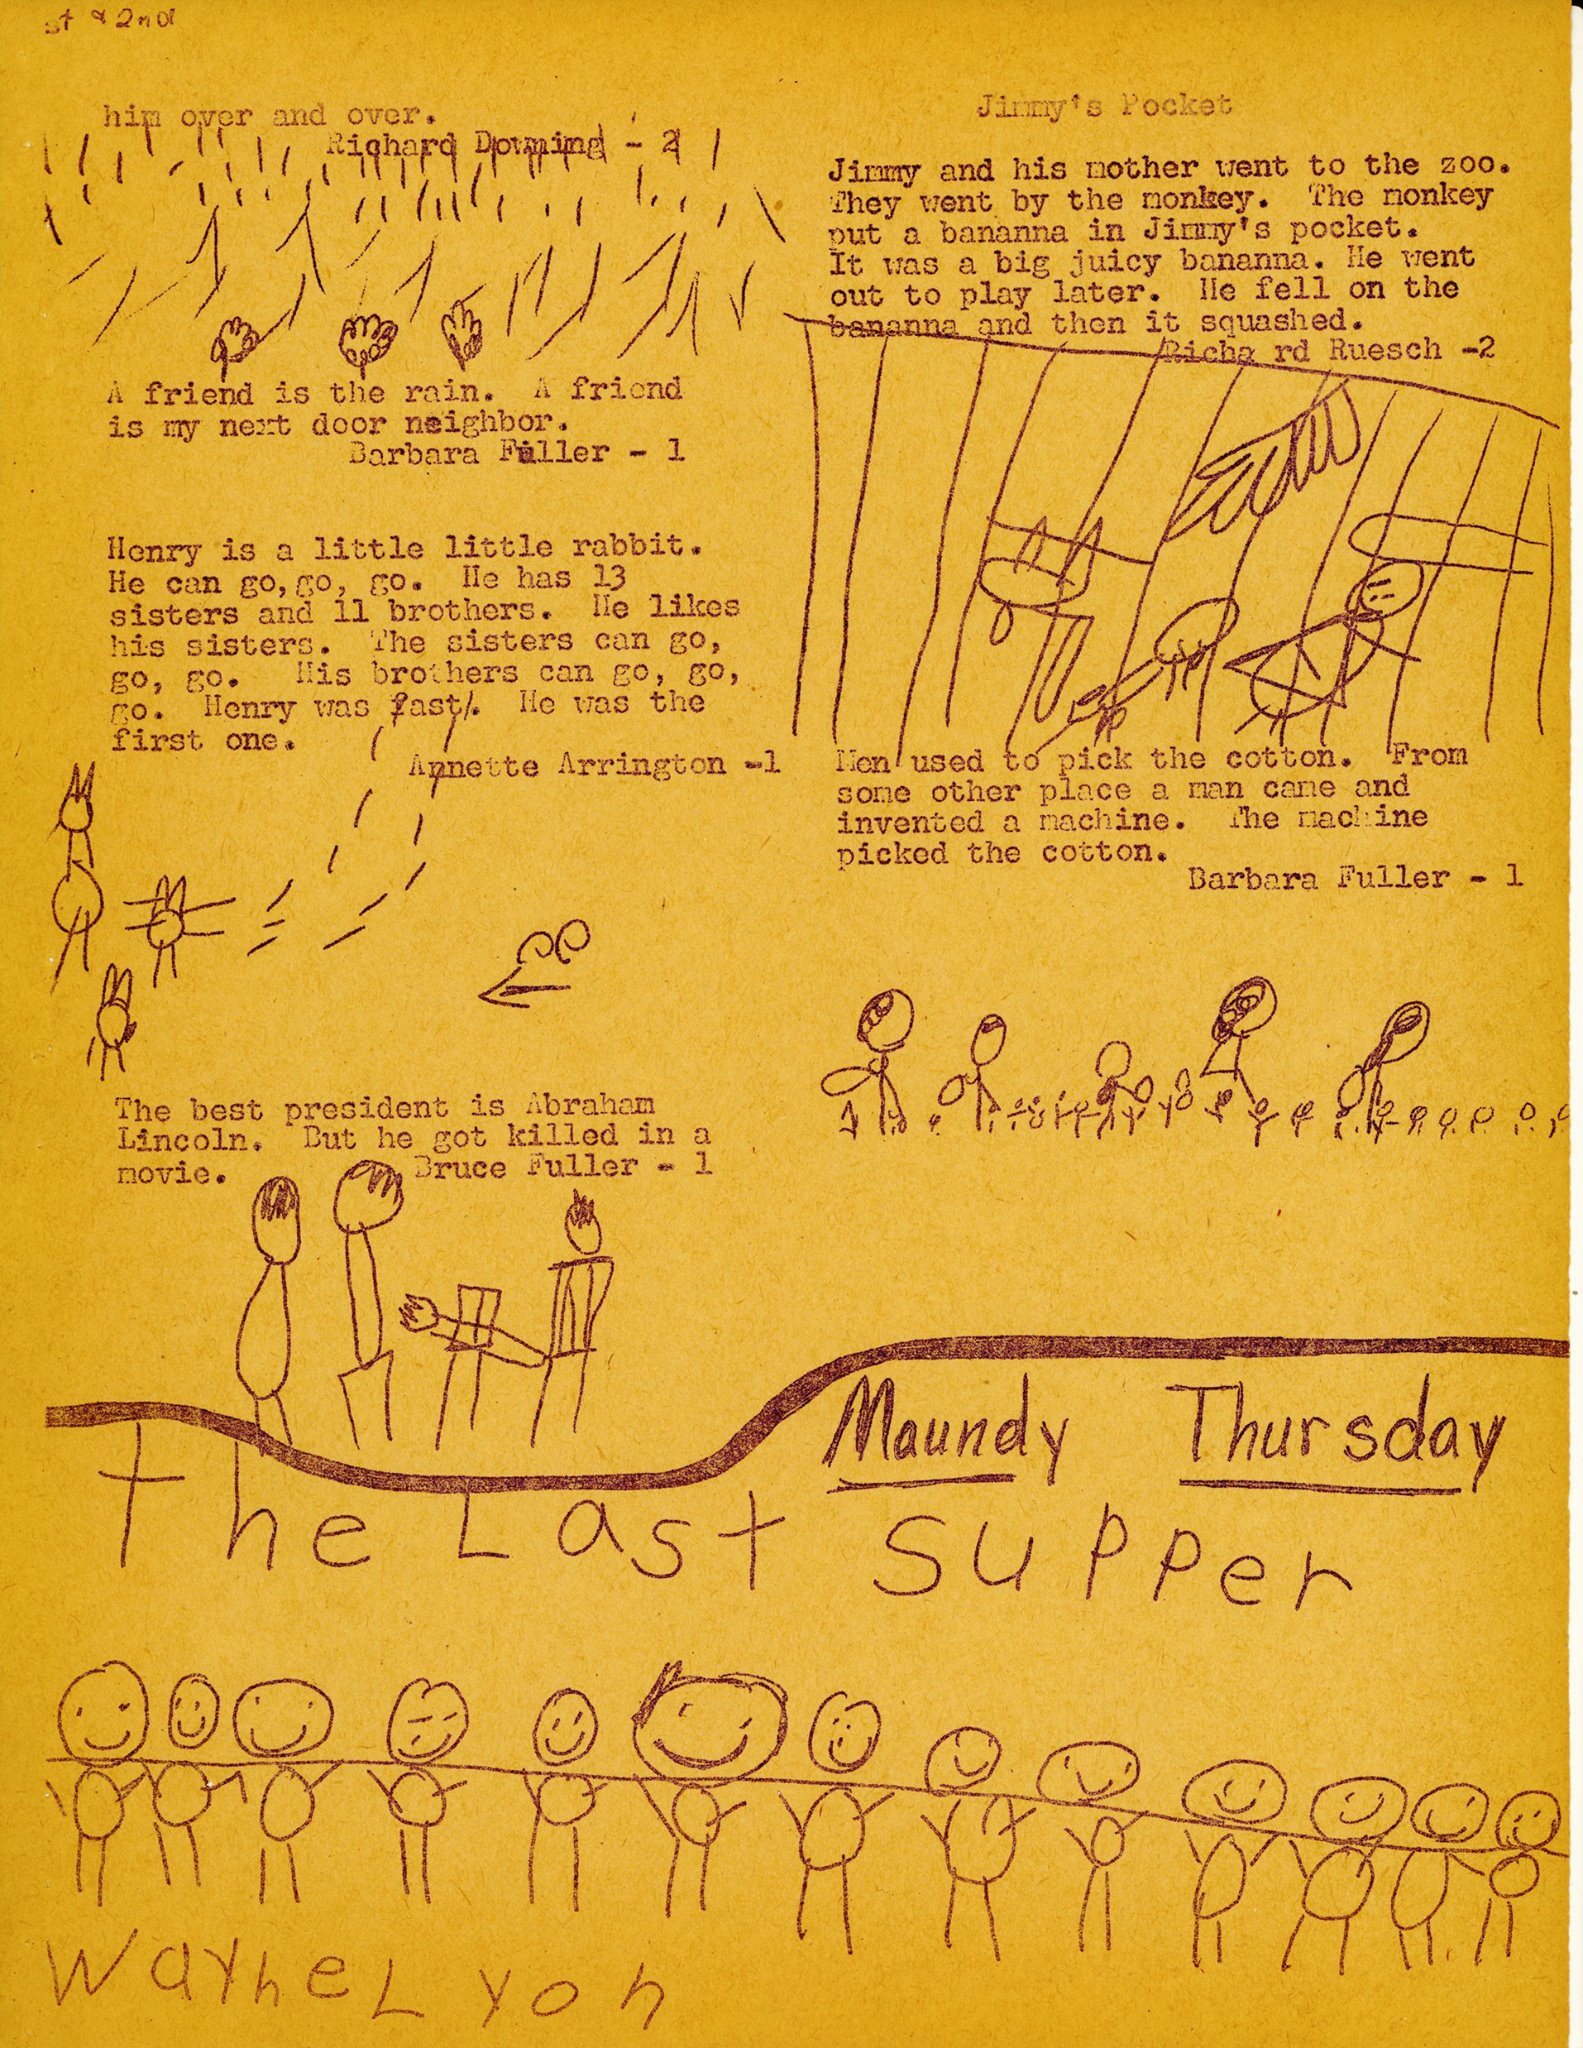 st & 2nd
him over and over.
Richard Downing - 2
A friend is the rain. A friend
is my next door neighbor.
Barbara Fuller - 1
Henry is a little little rabbit.
He can go,go, go. He has 13
sisters and 11 brothers. He likes
his sisters. The sisters can go,
go, go. His brothers can go, go,
go. Henry was fast/. He was the
first one.
Annette Arrington -1
The best president is Abraham
Lincoln. But he got killed in a
movie. Bruce Fuller - 1
Jimmy's Pocket
Jimmy and his mother went to the zoo.
They went by the monkey. The monkey
put a bananna in Jimmy's pocket.
It was a big juicy bananna. He went
out to play later. He fell on the
bananna and then it squashed.
Richa rd Ruesch -2
Men used to pick the cotton. From
some other place a man came and
invented a machine. The machine
picked the cotton.
Barbara Fuller - 1
Maundy Thursday
The Last Supper
Wayne Lyon